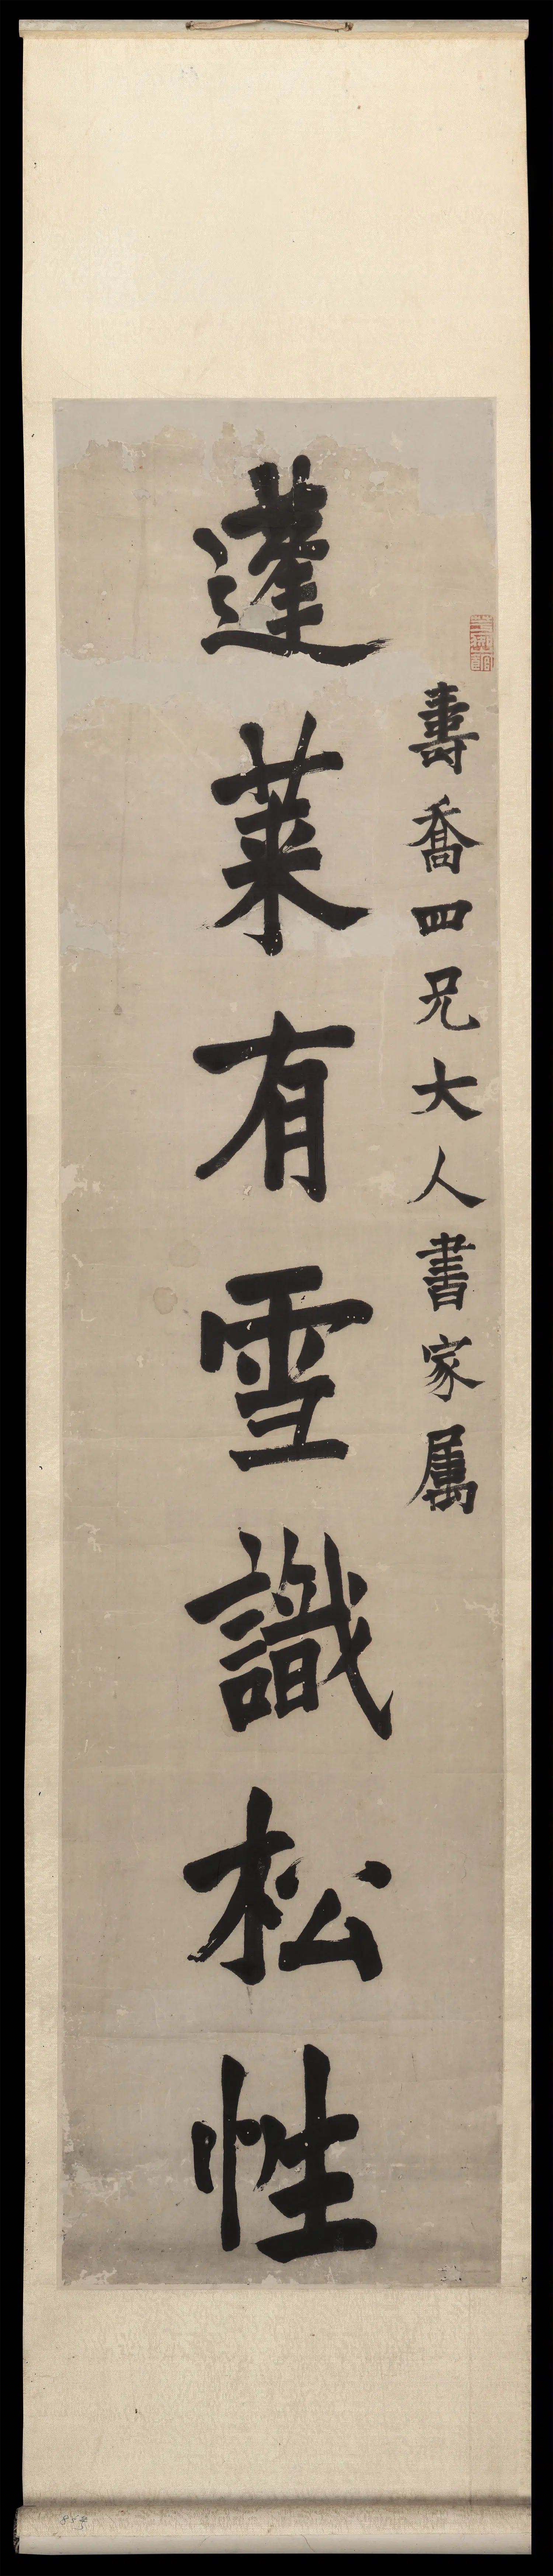 壽喬四兄大人書家属
蓬萊有雪識松性